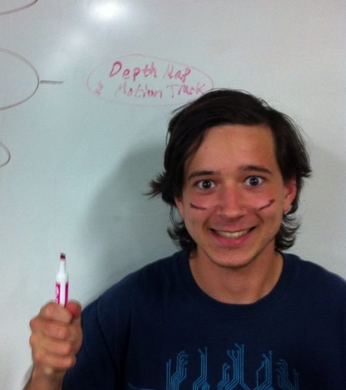 Depth Map
& Motion Track